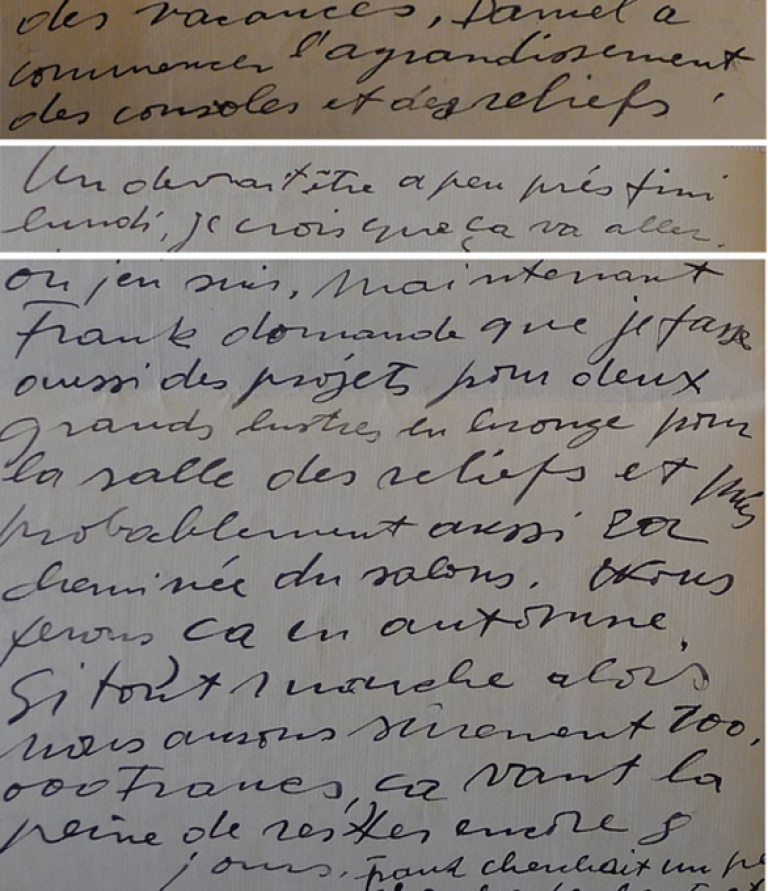 des vacances, Daniel a
commencer l'agrandissement
des consoles et des reliefs.
Un devrait être a peu prés fini
lundi, je crois que ça va aller.
ou jen suis, maintenant
Frank domande que je fasse
aussi des projets pour deux
grands lustres en bronze pour
la salle des reliefs et puis
probablement aussi la
cheminée du salons. Nous
ferons ça en automne.
Si tout marche alors
nous aurons surement 700.
000 Francs, ça vaut la
peine de rester encore 8
jours. Frank cherchait un